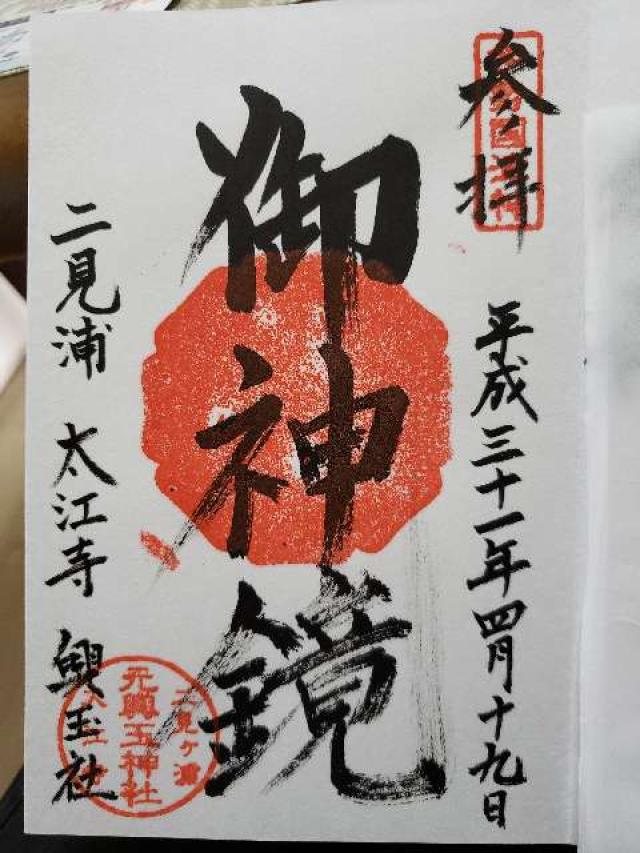 参拝
平成三十一年四月十九日
御神鏡
二見浦 太江寺 興玉社
元興玉神社
二見ヶ浦
太江寺